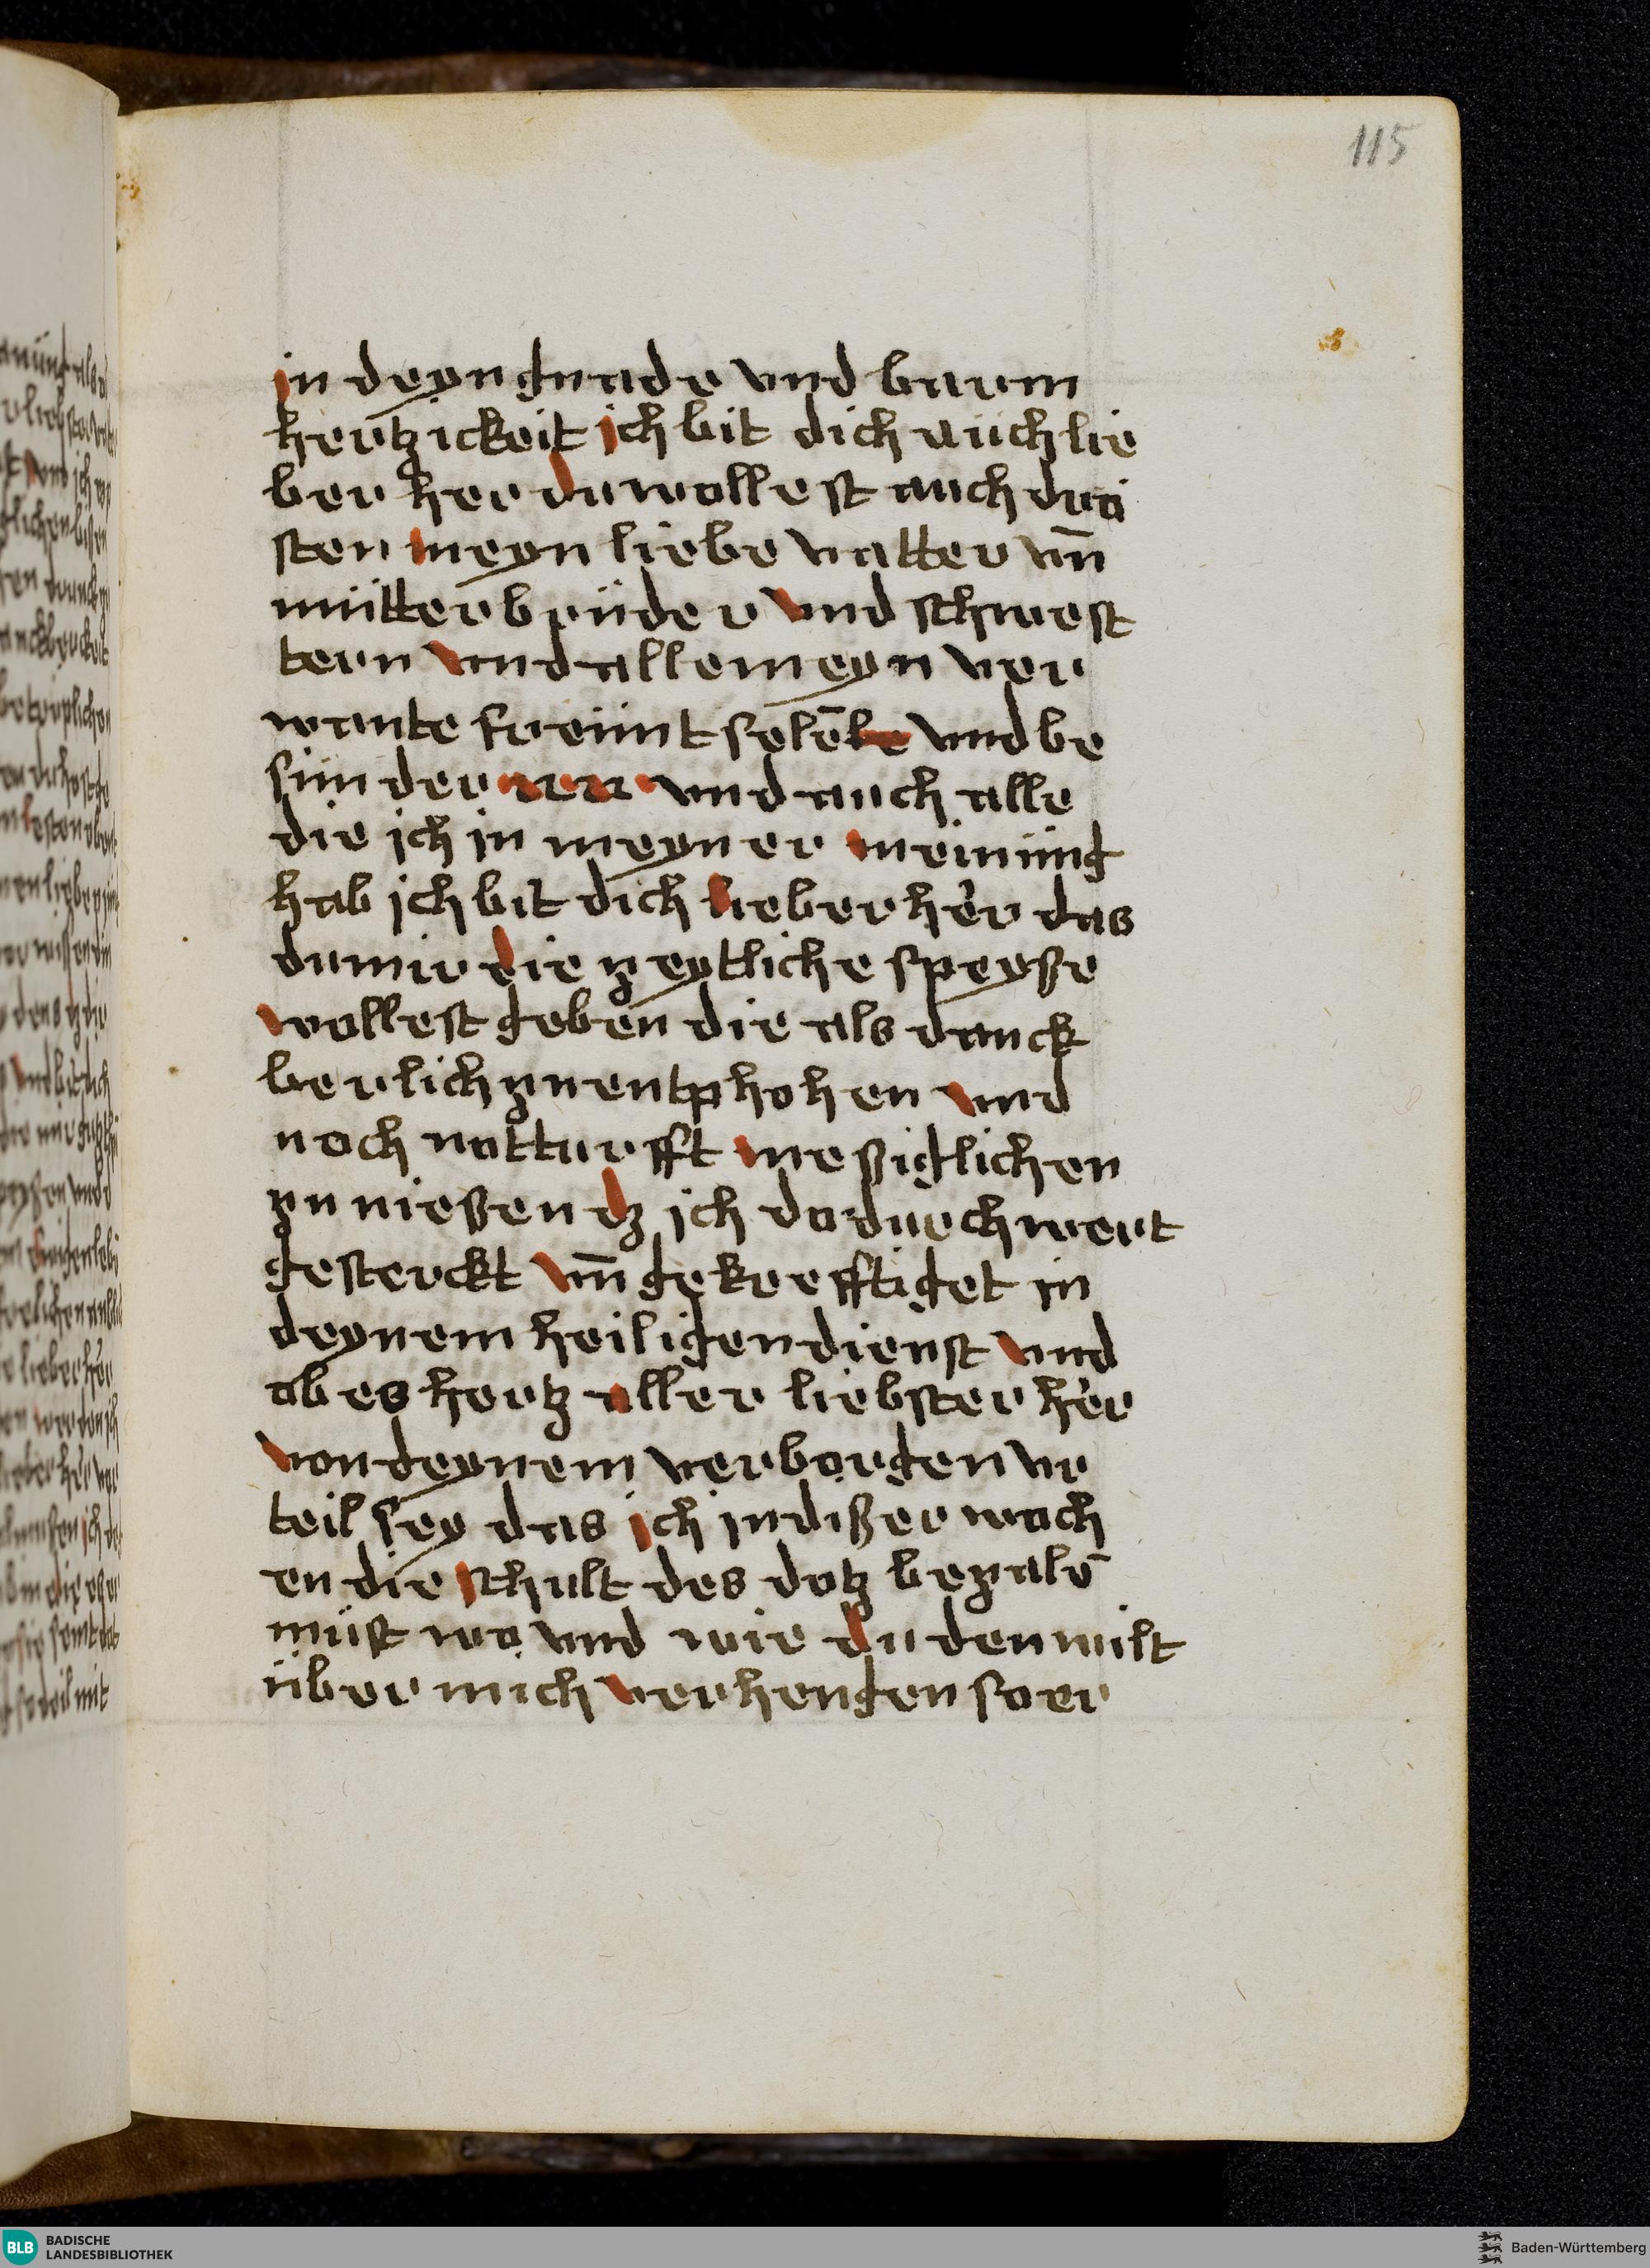 115
in deyn gnade vnd barm
hertzickeit ich bit dich aüch lie
ber her du wollest auch drö
sten meyn liebe vatter vn̄
mütter brüder vnd schwest
tern vnd alle meyn ver
wante freünt selēbe vnd be
sünder nn vnd auch alle
die ich in meyner meinüng
hab ich bit dich lieber her das
du mir die zeytliche speyße
wollest geben die als danck
berlich zu entphohen vnd
noch notturfft meßiglichen
zu nießen dz ich dordurch wert
gesterckt vn̄ gekrefftiget in
deynem heiligen dienst vnd
ob es hertz aller liebster her
von deynem verborgen vr
teil sey das ich in dißer woch
en die schult des dotz bezalē
müst wo vnd wie du den wilt
über mich verhengen so er
BLB BADISCHE
LANDESBIBLIOTHEK
Baden-Württemberg